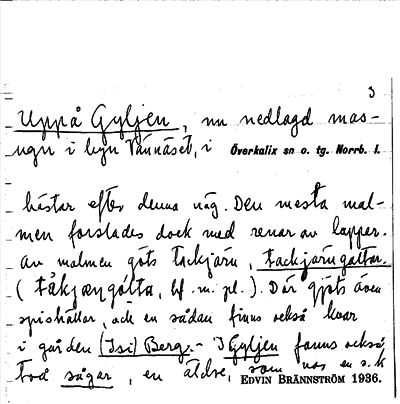 3
Uppå Gyljen, nu nedlagd mas-
ugn i byn Vännäset, i Överkalix sn o. tg. Norrb. l.
hästar efter denna väg. Den mesta mal-
men forslades dock med renar av lappar.
av malmen göts tackjärn, tackjärnsgaltar.
Där gjöts även
spishällar, och en sådan finns också kvar
i gården (Isi) Berg. - I Gyljen fanns också
två sågar, en äldre, som var en s.k
EDVIN BRÄNNSTRÖM 1936.